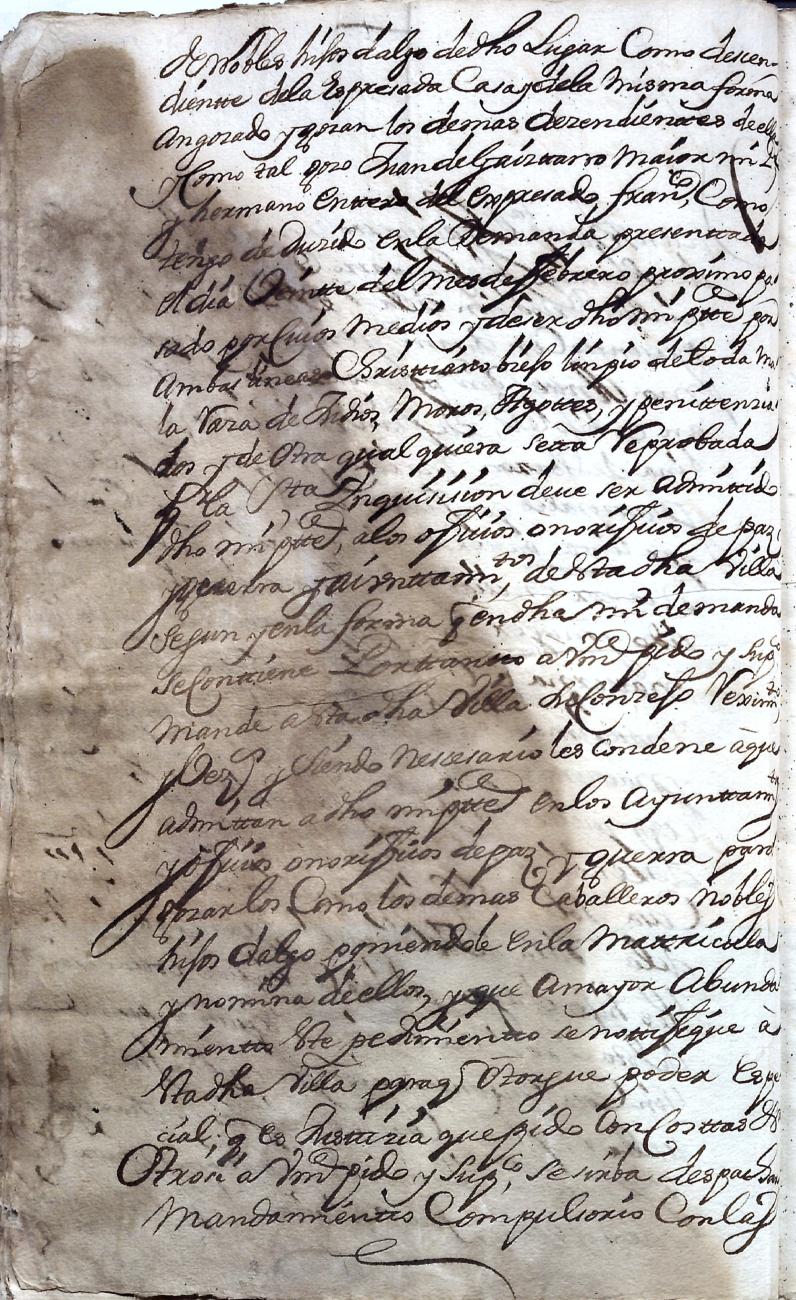 de Nobles hijos dalgo de dho Lugar Como descen-
diente dela Espresada Casa y dela misma forma
an gozado y gozan los demas dezendientes de ella
y Como tal gozo Juan de Gaiztarro maior mi
y hermano entero del expresado franco Como
tengo deduzido en la Demanda presenttada
el dia Veintte del mes de febrero proximo pa
sado por Cuios medios y de ser dho mi ptte por
Ambas lineas Christtiano biejo limpio de toda ma
la Raza de Judios, Moros, Agottes, y penittenzia
dos y de otra qual quiera setta Reprobada
por la Sta Inquisision deve ser admittido
dho mi ptte, a los ofizios onorificos de paz
y guerra y aiunttamttos, de Esta dha Villa
segun y en la forma q en dha mi demanda
se Conttiene Por ttantto a Vmd pido y Supco
mande a Esta dha Villa su Conzejo Rexim.to
y Vezos y siendo nescesario les condene à que
admittan a dho mi ptte en los Ayunttamtos
y ofizios onorificos de paz y guerra para
gozarlos Como los demas Caballeros nobles
hijos dalgo poniendole en la Mattricula
y nomina de ellos, y que a mayor Abunda
mientto Este pedimientto se nottifique à
Esta dha Villa para q Otorgue poder Espe
cial; q es Justizia que pido con Costtas &a
Otrosi a Vmd pido y Supco, se sirba despachar
Mandamientto Compulsorio Con las